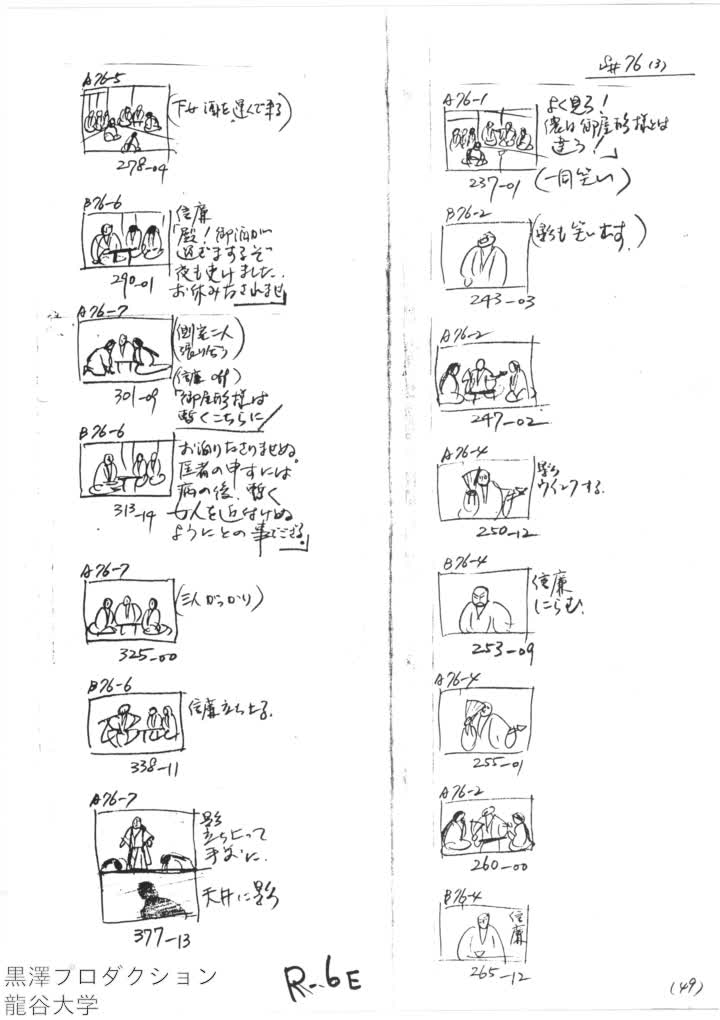 S# 76 (3)
A76-1
よく見ろ!
俺は御屋形様とは
違う!」
(一同笑い)
237-01
B76-2
(影も笑い出す)
243-03
A76-2
247-02
A76-4
影
ウインクする.
250-12
B76-4
信廉
にらむ.
253-09
A76-4
255-01
A76-2
260-00
B76-4
信廉
265-12
(49)
A76-5
(下女 酒を運んで来る)
278-04
B76-6
信廉
「殿!御酒が
過ぎまするぞ
夜も更けました..
お休みなされませ」
290-01
A76-7
(側室二人
)
(信廉 off)
「御屋形様は
暫くこちらに
301-09
B76-6
お泊りなさりませぬ.
医者の申すには
病の後、暫く
女人を近付けぬ
ようにとの事でござる.」
313-14
A76-7
(三人がっかり)
325-00
B76-6
信廉立ち上る.
338-11
A76-7
影
立ち上って
天井に影
377-13
R-6E
黒澤プロダクション
龍谷大学